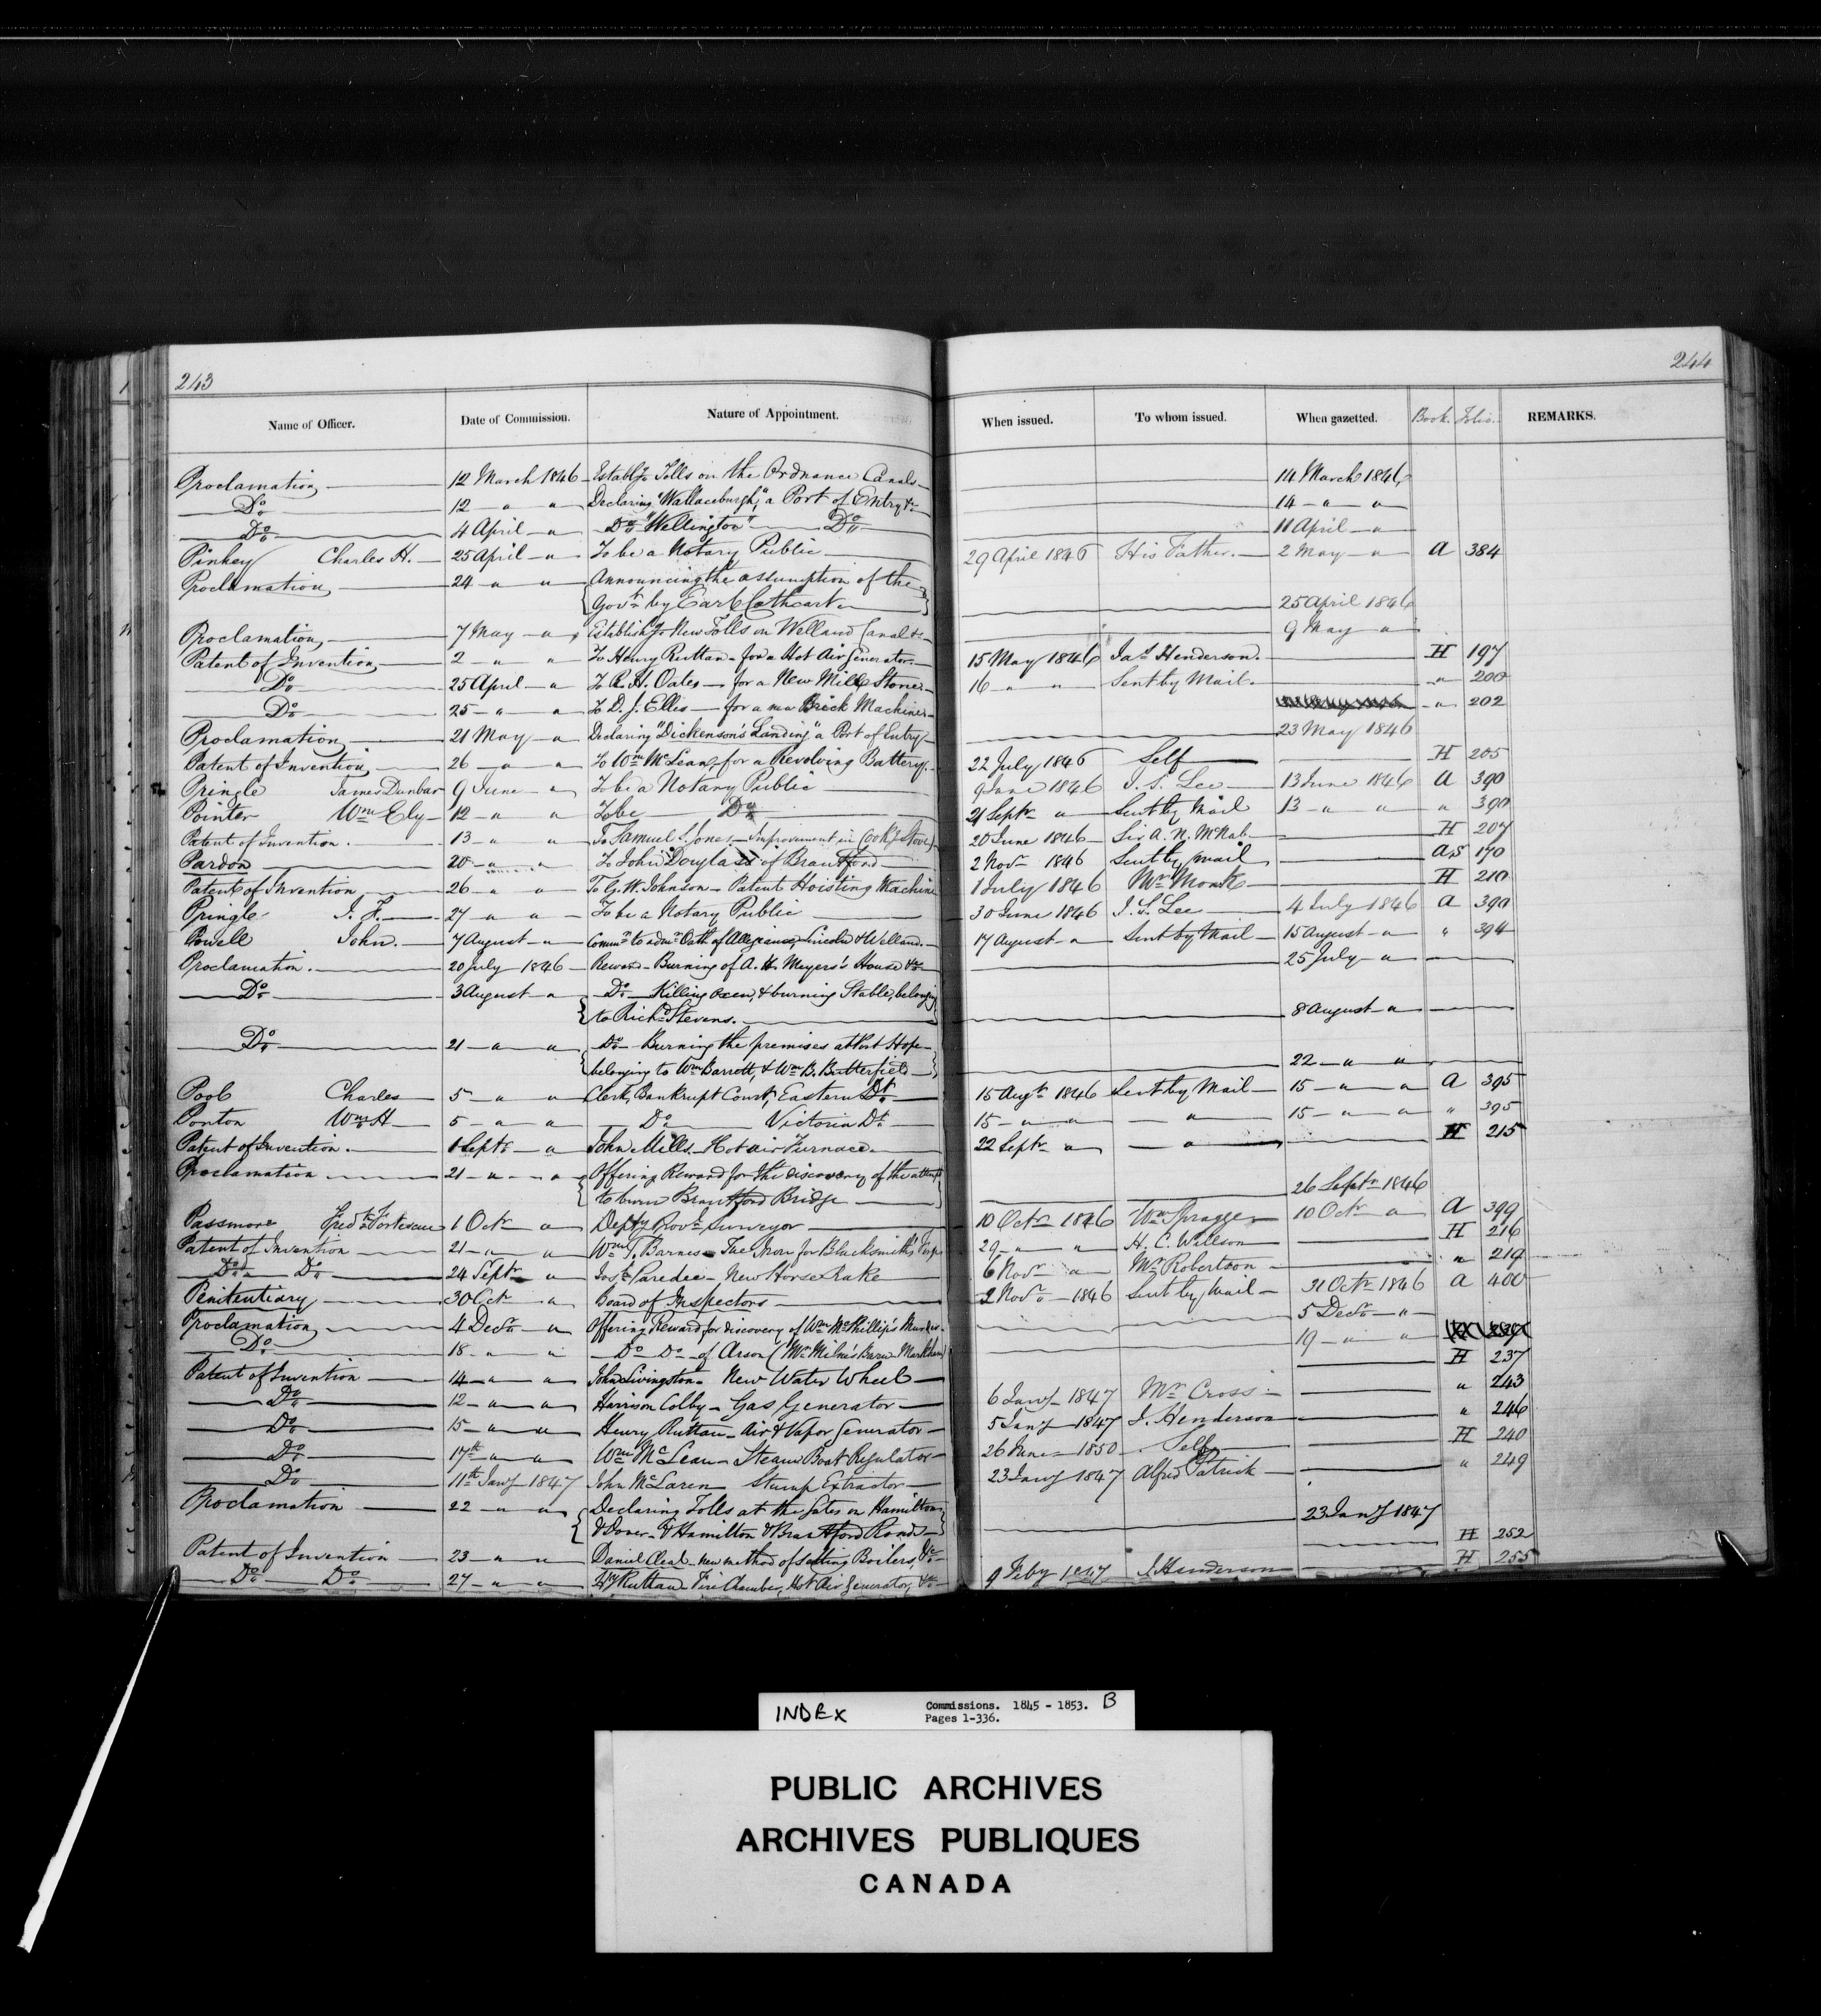 243
244
Name of Officer. Date of Commission. Nature of Appointment. When issued. To whom issued. When gazetted. Book. Folio. REMARKS.
Proclamation 12 March 1846 Establg Tolls on the Ordnance Canals 14 March 1846
Do 12 " " Declaring "Wallaceburgh," a Port of Entry &c 14 " "
Do 4 April " Do "Wellington" Do 11 April "
Pinkey Charles H. 25 April " To be a Notary Public 29 April 1846 His Father. 2 May " A 384
Proclamation 24 " " Announcing the assumption of the
Govt by Earl Cathcart 25 April 1846
Proclamation, 7 May " Establishg New Tolls on Welland Canal &c 9 May "
Patent of Invention, 2 " " To Henry Ruttan - for a Hot Air Generator. 15 May 1846 Jas Henderson. H 197
Do 25 April " To R. H. Oates - for a New Mill Stone 16 " " Sent by Mail. " 200
Do 25 " " To D. J. Ellis - for a new Brick Machine " 202
Proclamation 21 May " Declaring "Dickenson's Landing" a Port of Entry 23 May 1846
Patent of Invention 26 " " To Wm McLean, for a Revolving Battery. 22 July 1846 Self H 205
Pringle James Dunbar 9 June " To be a Notary Public 9 June 1846 J. S. Lee 13 June 1846 A 390
Pointer Wm Ely 12 " " To be Do 21 Septr " Sent by Mail 13 " " " 390
Patent of Invention. 13 " " To Samuel S. Jones - Improvement in Cookg Stove 20 June 1846 Sir A. N. McNab. H 207
Pardon 20 " " To John Douglass of Brantford 2 Novr 1846 Sent by Mail AS 170
Patent of Invention 26 " " To G. W. Johnson - Patent Hoisting Machine 1 July 1846 Mr Monk H 210
Pringle J. F. 27 " " To be a Notary Public 30 June 1846 J. S. Lee 4 July 1846 A 390
Powell John. 7 August " Commn to admr Oath of Allegiance, Lincoln & Welland. 17 August " Sent by Mail 15 August " " 394
Proclamation. 20 July 1846 Reward - Burning of A. H. Meyers's House &c 25 July "
Do 3 August " Do Killing oxen, & burning Stable, belonging
to Richd Stevens. 8 August "
Do 21 " " Do Burning the premises at Port Hope
belonging to Wm Barrett, & Wm B. Butterfield 22 " "
Pool Charles 5 " " Clerk, Bankrupt Court, Eastern Dt 15 Augt 1846 Sent by Mail 15 " " A 395
Ponton Wm H 5 " " Do Victoria Dt 15 " " " 15 " " " 395
Patent of Invention. 1 Septr " John Mills - Hot air Furnace. 22 Septr " " H 215
Proclamation 21 " " Offering Reward for the discovery of the attempt
to burn Brantford Bridge 26 Septr 1846
Passmore Fredk Fortescue 1 Octr " Depty Provl Surveyor 10 Octr 1846 Wm Spragge 10 Octr " A 399
Patent of Invention 21 " " Wm T. Barnes - Tue Iron for Blacksmith's Forge 29 " " H. C. Willson H 216
Do Do 24 Septr " Josh Paredee - New Horse Rake 6 Novr " Mr Robertson " 219
Penitentiary 30 Octr " Board of Inspectors 2 Novr 1846 Sent by Mail 31 Octr 1846 A 400
Proclamation 4 Decr " Offering Reward for discovery of Wm McPhillip's Murder. 5 Decr "
Do 18 " " Do Do of Arson (Mr Milne's Barn Markham) 19 " "
Patent of Invention 14 " " John Livingston - New Water Wheel H 237
Do 12 " " Harrison Colby - Gas Generator 6 Jany 1847 Mr Cross " 243
Do 15 " " Henry Ruttan - Air & Vapor Generator 5 Jany 1847 J. Henderson " 246
Do 17th " " Wm McLean - Steam Boat Regulator 26 June 1850 Self H 240
Do 11th Jany 1847 John McLaren Stump Extractor 23 Jany 1847 Alfred Patrick " 249
Proclamation 22 " " Declaring Tolls at the Gates on Hamilton
& Dover - & Hamilton & Brantford Roads 23 Jany 1847
Patent of Invention 23 " " Daniel Cleal - new method of setting Boilers, &c H 252
Do Do 27 " " Hy Ruttan - Fire Chamber, Hot Air Generator, &c 9 Feby 1847 J. Henderson H 255
INDEX Commissions. 1845 - 1853. B
Pages 1-336.
PUBLIC ARCHIVES
ARCHIVES PUBLIQUES
CANADA